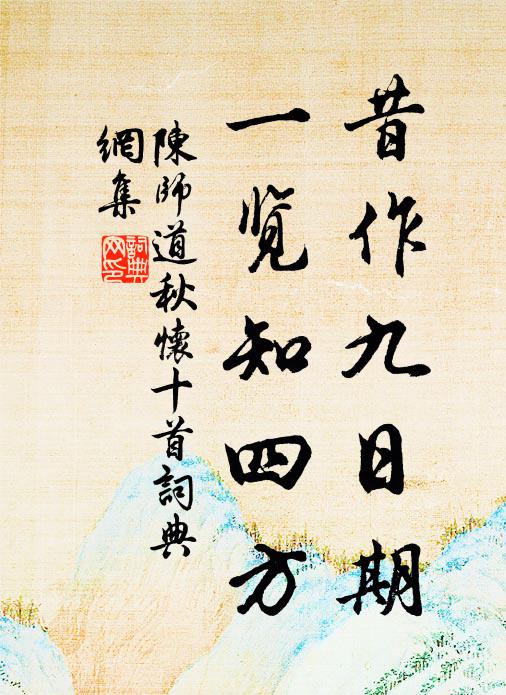 昔作九日期
一览知四方
陳師道秋懷十首詞典
網集
詞典
网印